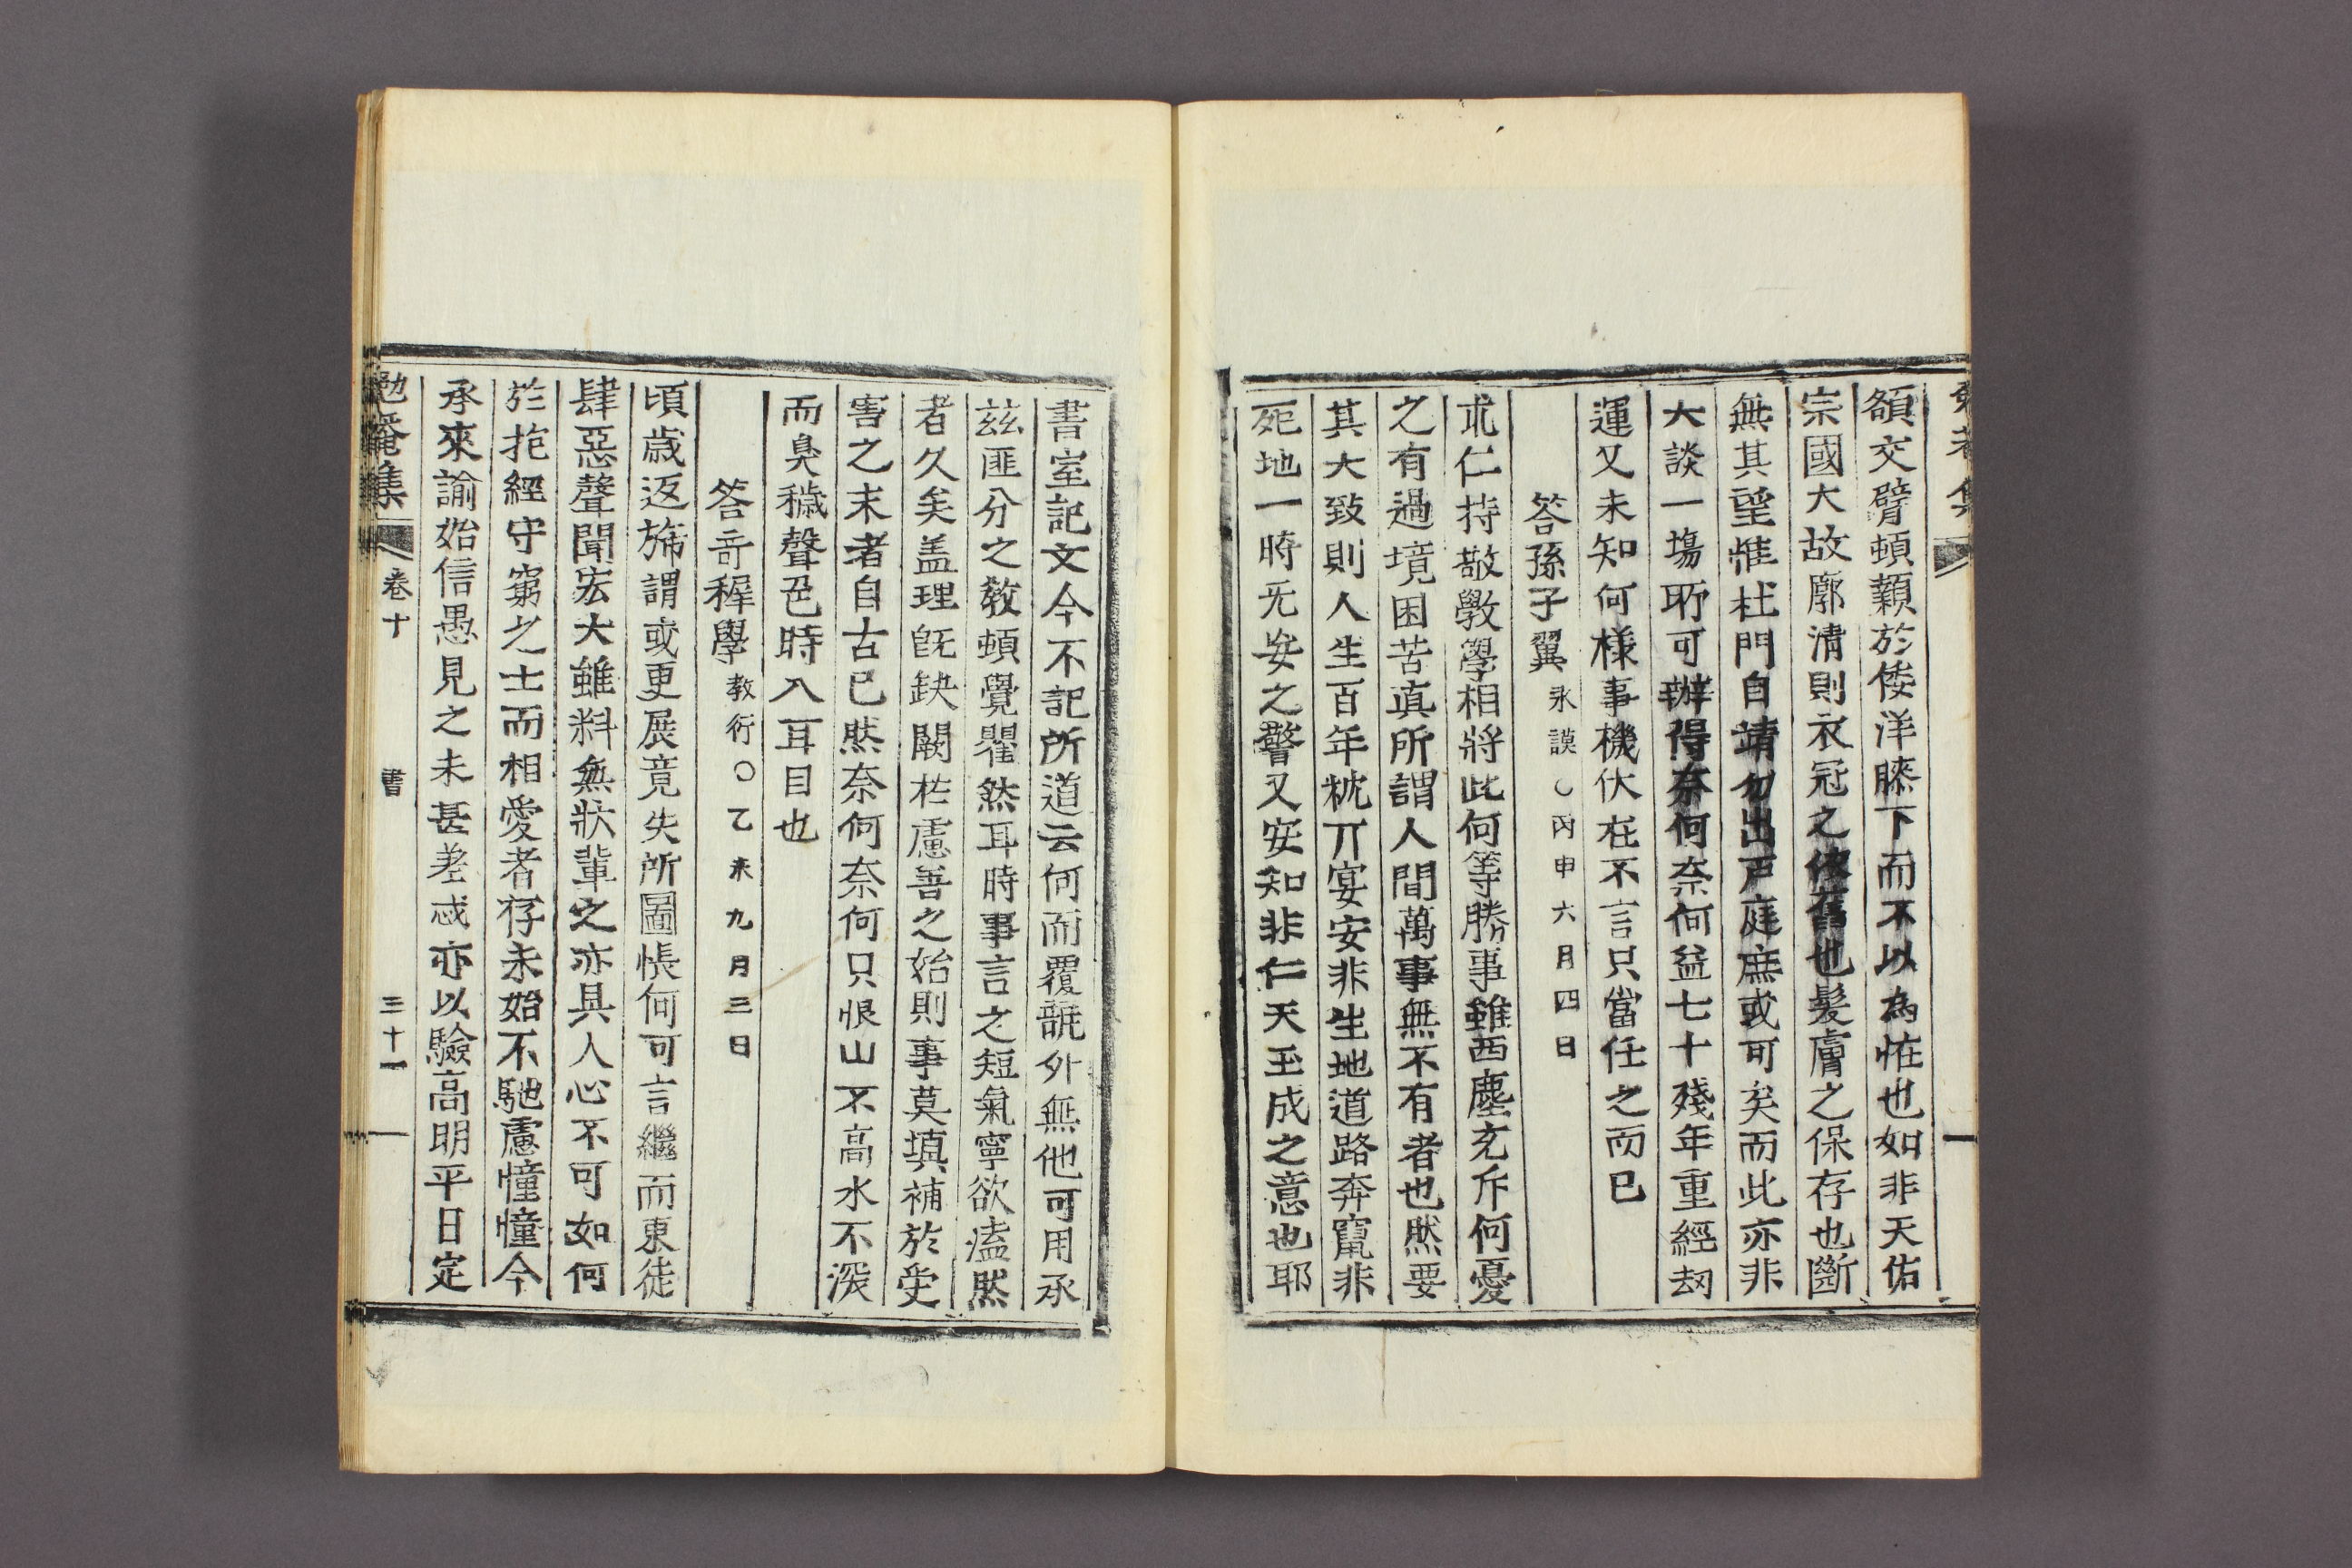 額交臂頓顙於倭洋膝下而不以為恠也如非天佑
宗國大故廓清則衣冠之依舊也髮膚之保存也斷
無其望惟杜門自靖勿出戶庭庶或可矣而此亦非
大談一塲所可辦得奈何奈何益七十殘年重經刼
運又未知何樣事機伏在不言只當任之而已
答孫子翼永謨○丙申六月四日
求仁持敬斅學相將此何等勝事雖西塵充斥何憂
之有過境困苦眞所謂人間萬事無不有者也然要
其大致則人生百年枕丌宴安非生地道路奔竄非
死地一時无妄之警又安知非仁天玉成之意也耶
書室記文今不記所道云何而覆瓿外無他可用承
玆匪分之敎頓覺瞿然耳時事言之短氣寧欲溘然
者久矣盖理旣缺闕於慮善之始則事莫塡補於受
害之末者自古已然奈何奈何只恨山不高水不深
而臭穢聲色時入耳目也
答奇穉學敎衍○乙未九月三日
頃歲返旆謂或更展竟失所圖悵何可言繼而東徒
肆惡聲聞宏大雖料無狀輩之亦具人心不可如何
於抱經守窮之士而相愛者存未始不馳慮憧憧今
承來諭始信愚見之未甚差忒亦以驗高明平日定
勉菴集 卷十 書 三十一